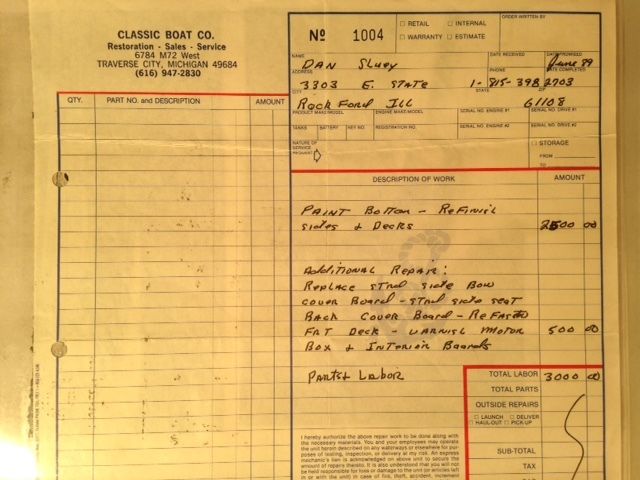 CLASSIC BOAT CO.
Restoration - Sales - Service
6784 M72 West
TRAVERSE CITY, MICHIGAN 49684
(616) 947-2830
No 1004
RETAIL INTERNAL
WARRANTY ESTIMATE
ORDER WRITTEN BY
NAME DATE RECEIVED DATE PROMISED
DAN June 89
ADDRESS PHONE DATE COMPLETED
3303 E. STATE 1-815-398 2703
CITY STATE ZIP
RockFord Ill 61108
PRODUCT MAKE/MODEL ENGINE MAKE/MODEL SERIAL NO. ENGINE #1 SERIAL NO. DRIVE #1
TANKS BATTERY KEY NO. REGISTRATION NO. SERIAL NO. ENGINE #2 SERIAL NO. DRIVE #2
NATURE OF
SERVICE
REQUEST
STORAGE
FROM
TO
QTY. PART NO. and DESCRIPTION AMOUNT
DESCRIPTION OF WORK AMOUNT
PAINT BOTTOM - REFINISH
SIDES & DECKS 2500 00
ADDITIONAL REPAIR:
REPLACE STRD SIDE BOW
COVER BOARD - STRD SIDE SEAT
BACK COVER BOARD - REFASTEN
FRT DECK - VARNISH MOTOR 500 00
BOX & INTERIOR BOARDS
PARTS & LABOR
TOTAL LABOR 3000 00
TOTAL PARTS
OUTSIDE REPAIRS
LAUNCH DELIVER
HAUL-OUT PICK-UP
SUB-TOTAL
TAX
I hereby authorize the above repair work to be done along with
the necessary materials. You and your employees may operate
the unit herein described on any waterways or elsewhere for pur-
poses of testing, inspection, or delivery at my risk. An express
mechanic's lien is acknowledged on above unit to secure the
amount of repairs thereto. It is also understood that you will not
be held responsible for loss or damage to the unit (or articles left
in or with the unit) in case of fire, theft, accident, inclement